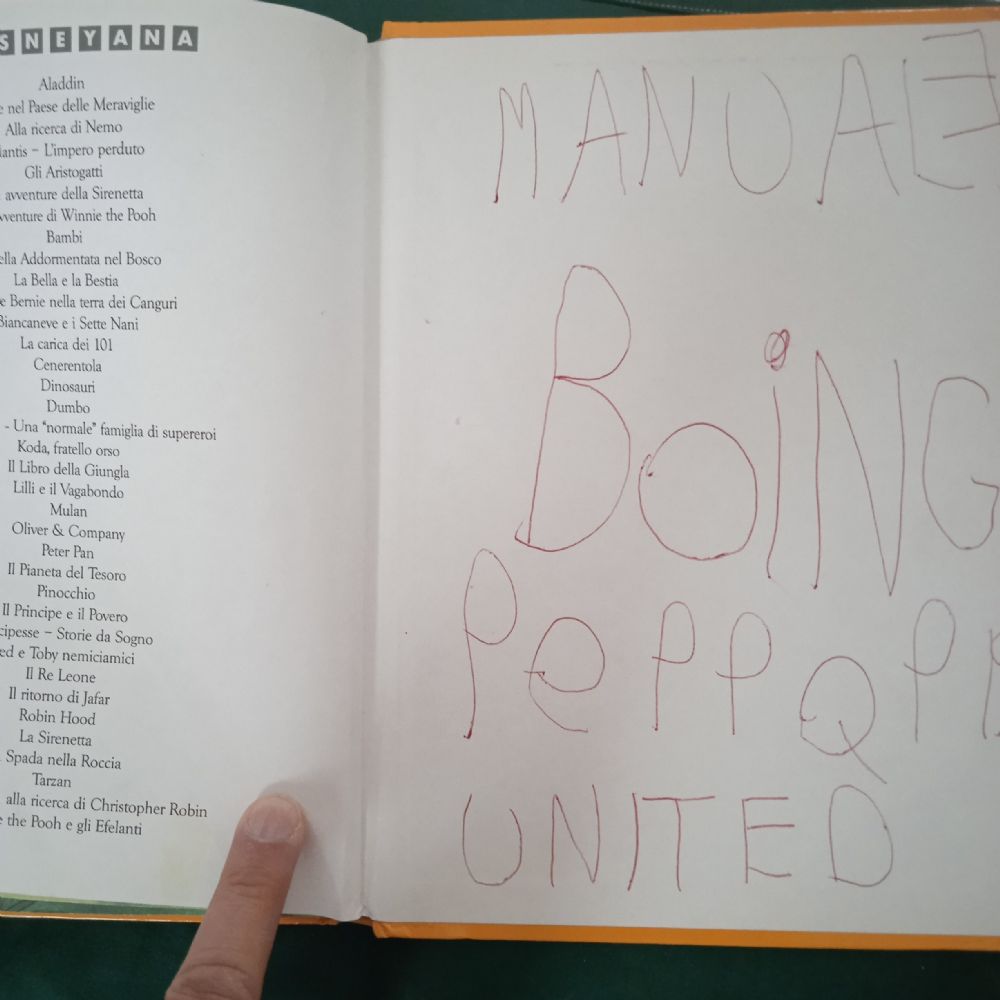 SNEYANA
Aladdin
e nel Paese delle Meraviglie
Alla ricerca di Nemo
lantis – L'impero perduto
Gli Aristogatti
avventure della Sirenetta
vventure di Winnie the Pooh
Bambi
ella Addormentata nel Bosco
La Bella e la Bestia
e Bernie nella terra dei Canguri
Biancaneve e i Sette Nani
La carica dei 101
Cenerentola
Dinosauri
Dumbo
- Una "normale" famiglia di supereroi
Koda, fratello orso
Il Libro della Giungla
Lilli e il Vagabondo
Mulan
Oliver & Company
Peter Pan
Il Pianeta del Tesoro
Pinocchio
Il Principe e il Povero
cipesse – Storie da Sogno
ed e Toby nemiciamici
Il Re Leone
Il ritorno di Jafar
Robin Hood
La Sirenetta
Spada nella Roccia
Tarzan
alla ricerca di Christopher Robin
e the Pooh e gli Efelanti
MANUALE
BoiNG
PePPQP
UNITED